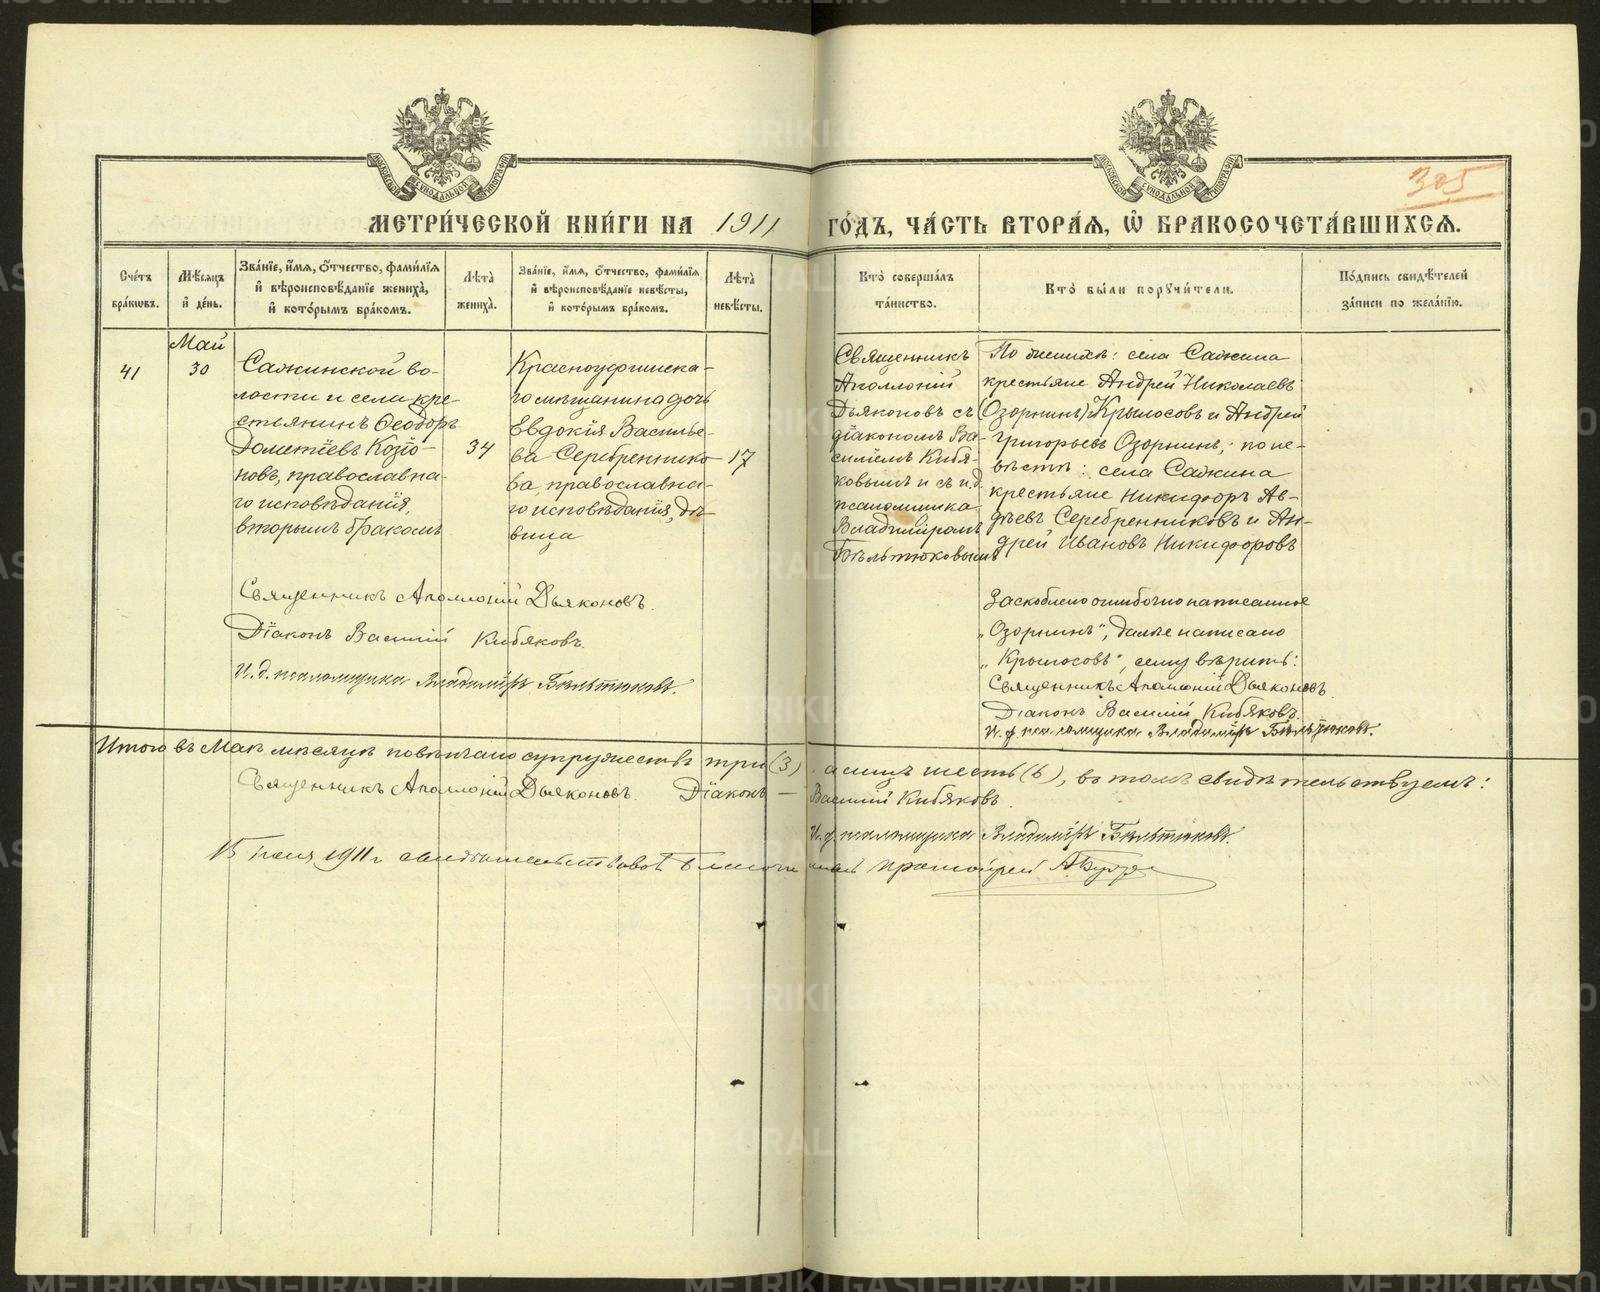 МЕТРИ́ЧЕСКОЙ КНИ́ГИ НА 1911 ГО́ДЪ, ЧА́СТЬ ВТОРА́Я, Ѡ БРАКОСОЧЕТА́ВШИХСЯ.
305
Сче́тъ бра́кѡвъ.
Мѣ́сяцъ и҆ де́нь.
Зва́нїе, и҆́мя, о҆́тчество, фами́лїя и҆ вѣроисповѣ́данїе жениха̀, и҆ кото́рымъ бра́комъ.
Лѣ́та жениха̀.
Зва́нїе, и҆́мя, о҆́тчество, фами́лїя и҆ вѣроисповѣ́данїе невѣ́сты, и҆ кото́рымъ бра́комъ.
Лѣ́та невѣ́сты.
Кто̀ соверша́лъ та́инство.
Кто̀ бы́ли поручи́тели.
По́дпись свидѣ́телей за́писи по жела́нїю.
41
Май
30
Сажинской во-
лости и села кре
стьянинъ Ѳеодоръ
Дометіевъ Козіо-
новъ, православна-
го исповѣданія,
вторымъ бракомъ
34
Красноуфимска-
го мѣщанина дочь
Евдокія Василье-
ва Серебреннико-
ва, православна-
го исповѣданія, дѣ-
вица
17
Священникъ
Аполлоній
Дьяконовъ съ
діакономъ Ва-
силіемъ Кибя-
ковымъ и съ и.д.
псаломщика
Владиміромъ
Бѣльтюковымъ
По женихѣ: села Сажина
крестьяне Андрей Николаевъ
(Озорнинъ) Крылосовъ и Андрей
Григорьевъ Озорнинъ; по не-
вѣстѣ: села Сажина
крестьяне Никифоръ Ав-
дѣевъ Серебренниковъ и Ан-
дрей Ивановъ Никифоровъ
Священникъ Аполлоній Дьяконовъ.
Діаконъ Василій Кибяковъ.
И.д. псаломщика Владиміръ Бѣльтюковъ.
Заскоблено ошибочно написанное
„Озорнинъ", далѣе написано
„Крылосовъ", сему вѣрить:
Священникъ Аполлоній Дьяконовъ.
Діаконъ Василій Кибяковъ.
И.д. псаломщика Владиміръ Бѣльтюковъ.
Итого въ Маѣ мѣсяцѣ повѣнчано супружествъ три (3) а лицъ шесть (6), въ томъ свидѣтельствуемъ:
Священникъ Аполлоній Дьяконовъ. Діаконъ — Василій Кибяковъ.
И.д. псаломщика Владиміръ Бѣльтюковъ.
15 Іюня 1911 г свидѣтельствовалъ Благочинный протоіерей
METRIKI.GASO-URAL.RU